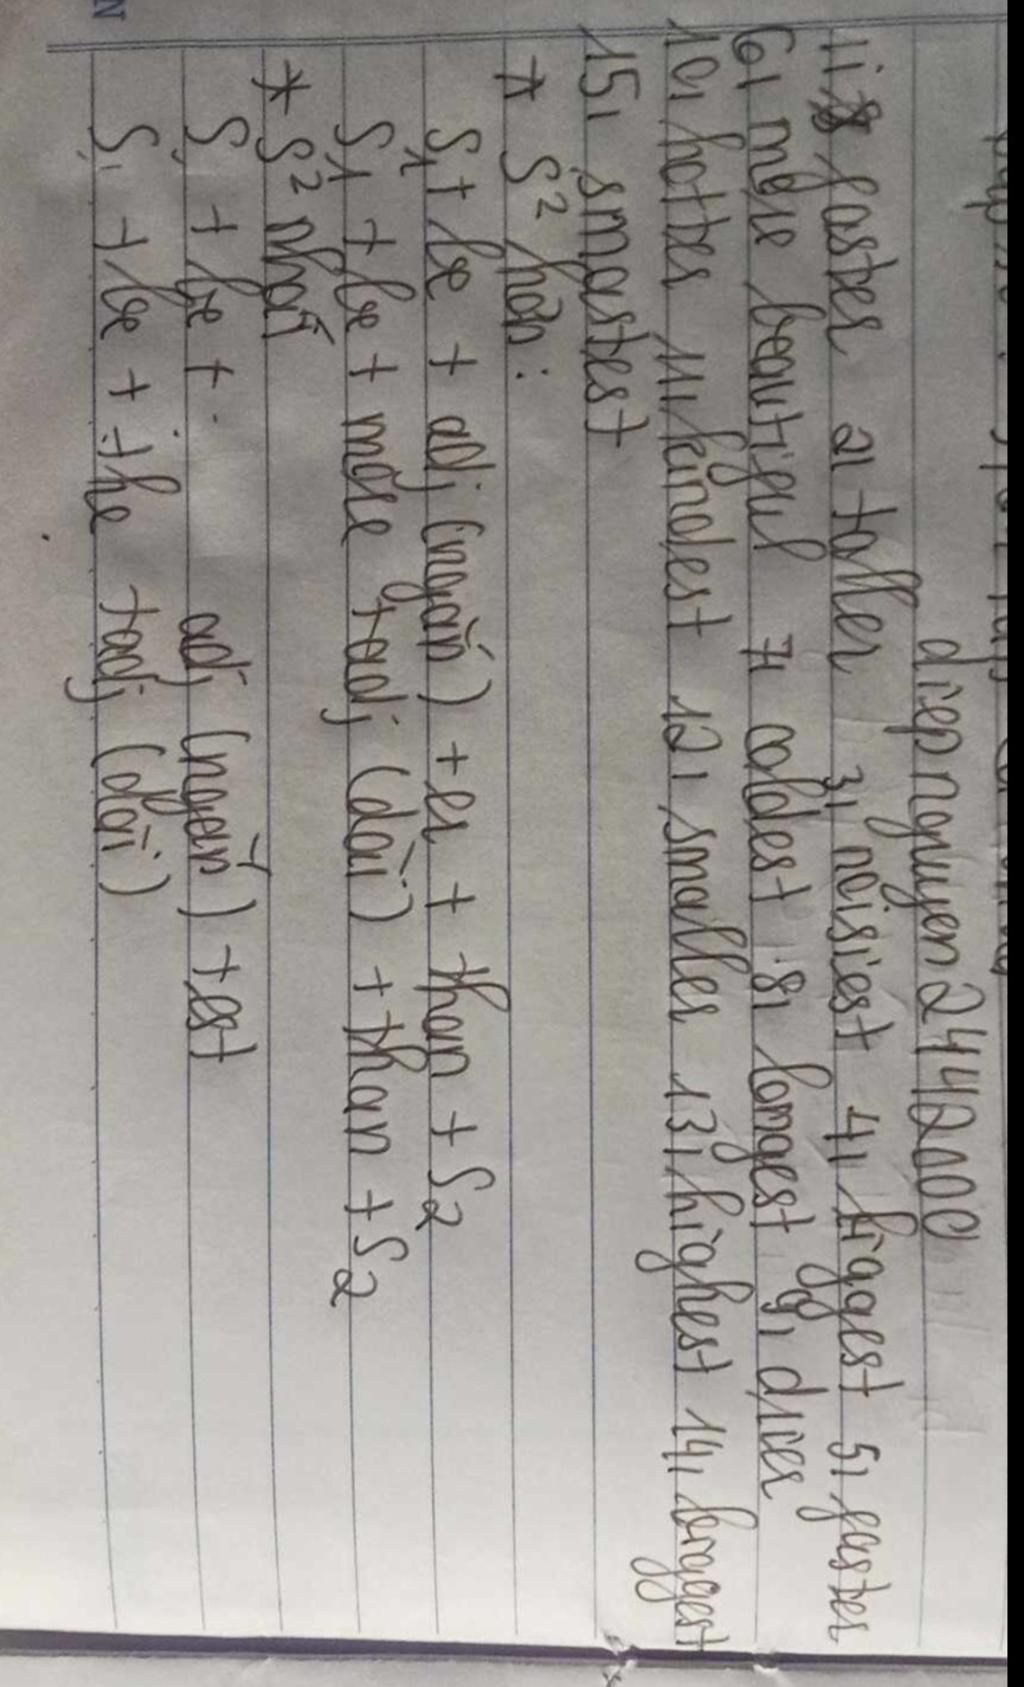 diepnguyen2442000
1, faster 2, taller 3, noisiest 4, biggest 5, faster
6, more beautiful 7, coldest 8, longest 9, drier
10, hotter 11, kindest 12, smaller 13, highest 14, biggest
15, smartest
* S² hơn:
S1 + be + adj (ngắn) + er + than + S2
S1 + be + more + adj (dài) + than + S2
* S² nhất
S + be + adj (ngắn) + est
S1 + be + the + adj (dài)